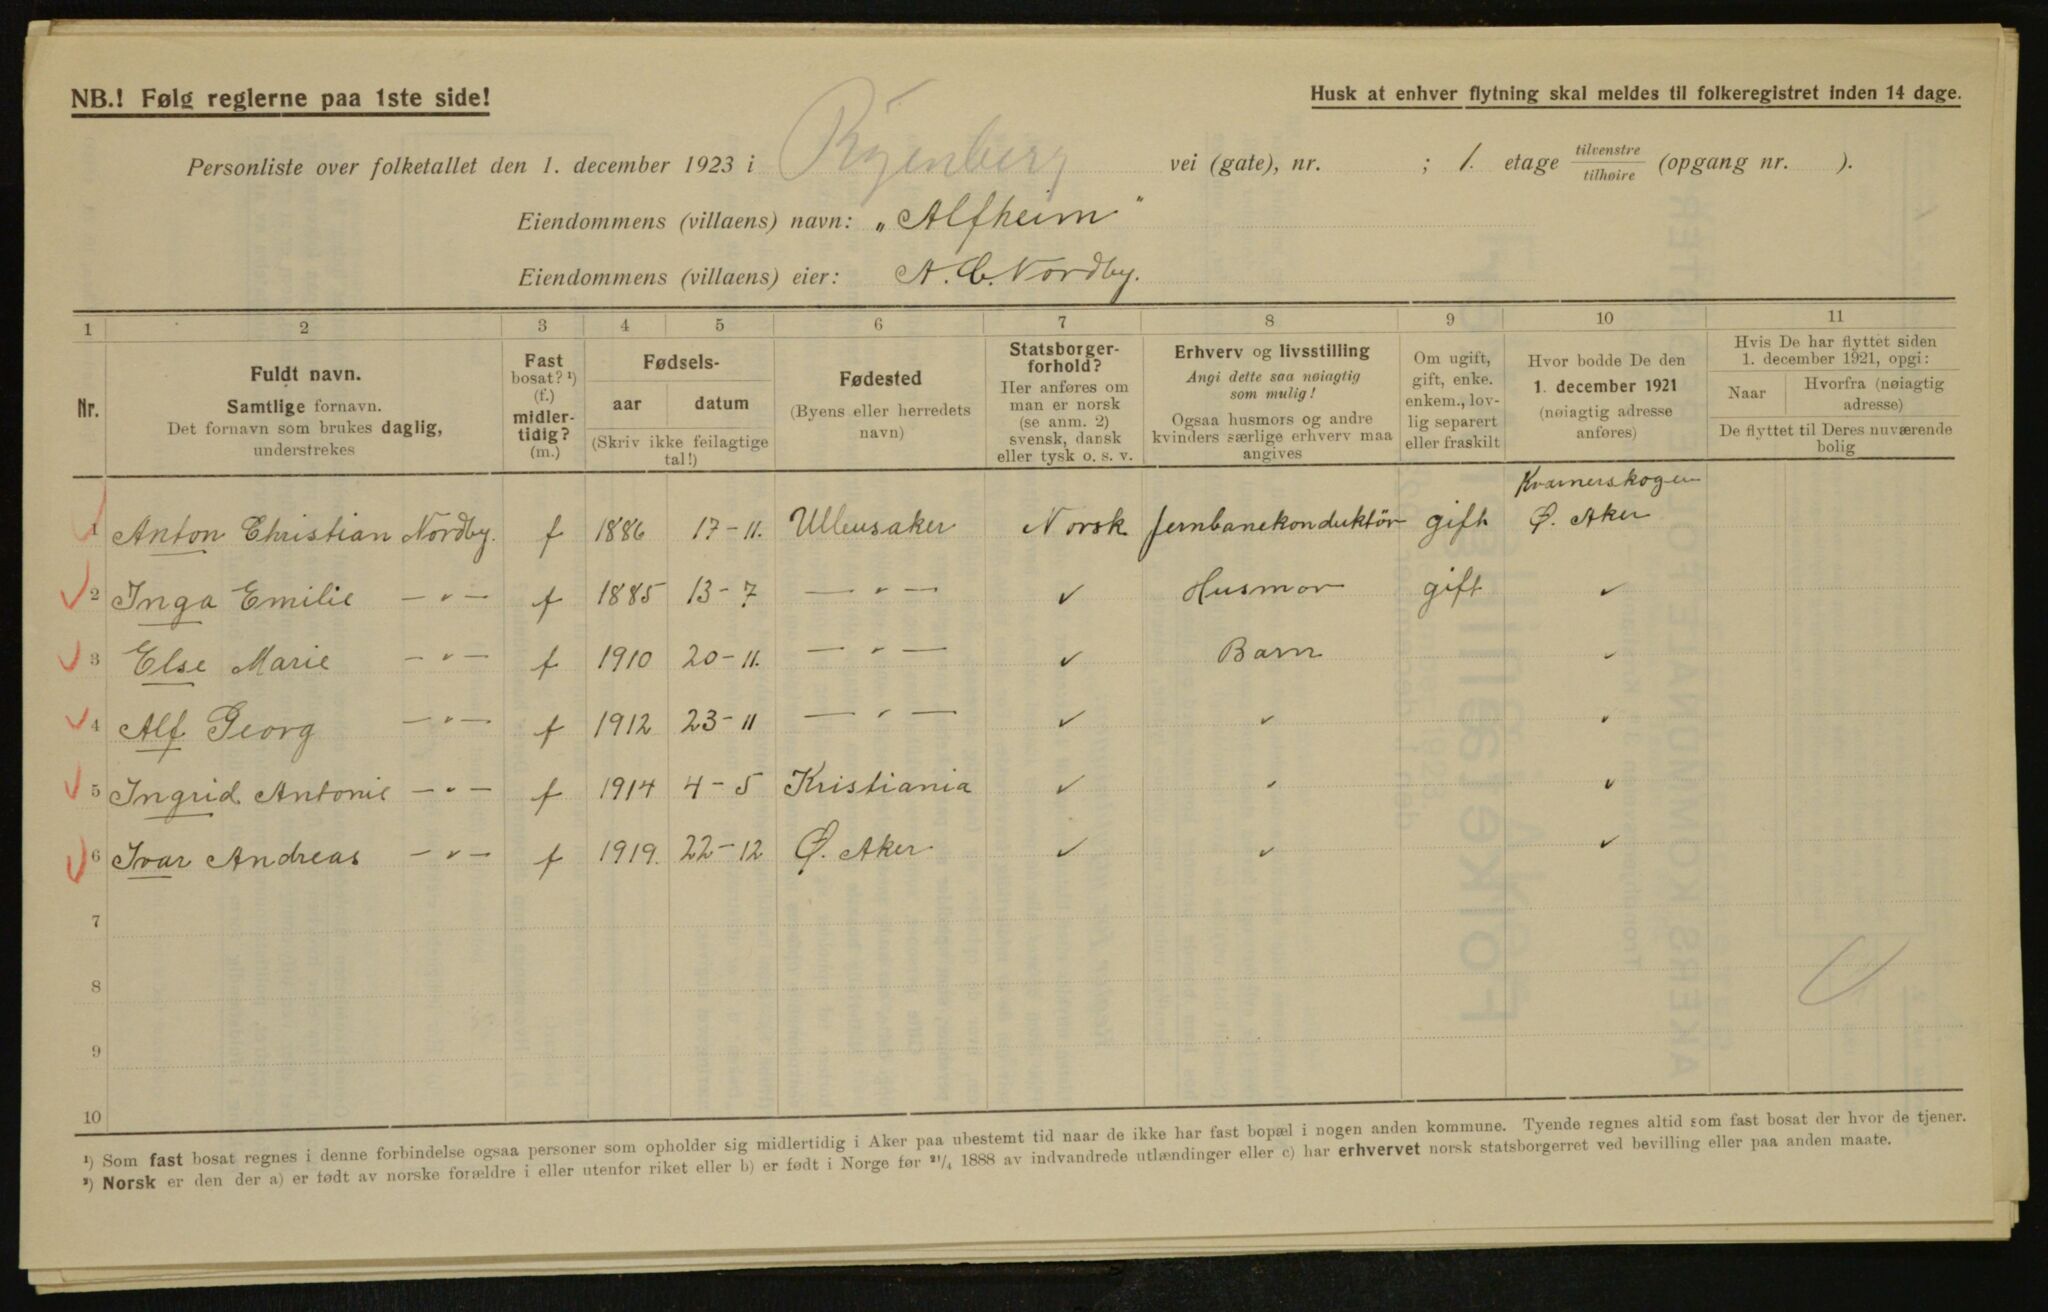 NB.! Følg reglerne paa 1ste side!
Husk at enhver flytning skal meldes til folkeregistret inden 14 dage.
Personliste over folketallet den 1. december 1923 i Ryenberg vei (gate), nr. ; 1. etage tilvenstre tilhøire (opgang nr. ).
Eiendommens (villaens) navn: „Alfheim"
Eiendommens (villaens) eier: A. C. Nordby.
1 2 3 4 5 6 7 8 9 10 11
Nr.
Fuldt navn.
Samtlige fornavn.
Det fornavn som brukes daglig,
understrekes
Fast
bosat? ¹)
(f.)
midler-
tidig?
(m.)
Fødsels-
aar datum
(Skriv ikke feilagtige
tal!)
Fødested
(Byens eller herredets
navn)
Statsborger-
forhold?
Her anføres om
man er norsk
(se anm. 2)
svensk, dansk
eller tysk o. s. v.
Erhverv og livsstilling
Angi dette saa nøiagtig
som mulig!
Ogsaa husmors og andre
kvinders særlige erhverv maa
angives
Om ugift,
gift, enke.
enkem., lov-
lig separert
eller fraskilt
Hvor bodde De den
1. december 1921
(nøiagtig adresse
anføres)
Hvis De har flyttet siden
1. december 1921, opgi:
Naar Hvorfra (nøiagtig
adresse)
De flyttet til Deres nuværende
bolig
Kværnerskogen
1 Anton Christian Nordby. f 1886 17-11. Ullensaker Norsk Jernbanekonduktör gift Ø. Aker
2 Inga Emilie — " — f 1885 13-7 — " — ✓ Husmor gift ✓
3 Else Marie — " — f 1910 20-11. — " — ✓ Barn ✓
4 Alf Georg — " — f 1912 23-11 — " — ✓ ✓ ✓
5 Ingrid Antonie — " — f 1914 4-5 Kristiania ✓ ✓ ✓
6 Ivar Andreas — " — f 1919. 22-12 Ø. Aker ✓ ✓ ✓
7
8
9
10
¹) Som fast bosat regnes i denne forbindelse ogsaa personer som opholder sig midlertidig i Aker paa ubestemt tid naar de ikke har fast bopæl i nogen anden kommune. Tyende regnes altid som fast bosat der hvor de tjener.
²) Norsk er den der a) er født av norske forældre i eller utenfor riket eller b) er født i Norge før ²¹/₄ 1888 av indvandrede utlændinger eller c) har erhvervet norsk statsborgerret ved bevilling eller paa anden maate.